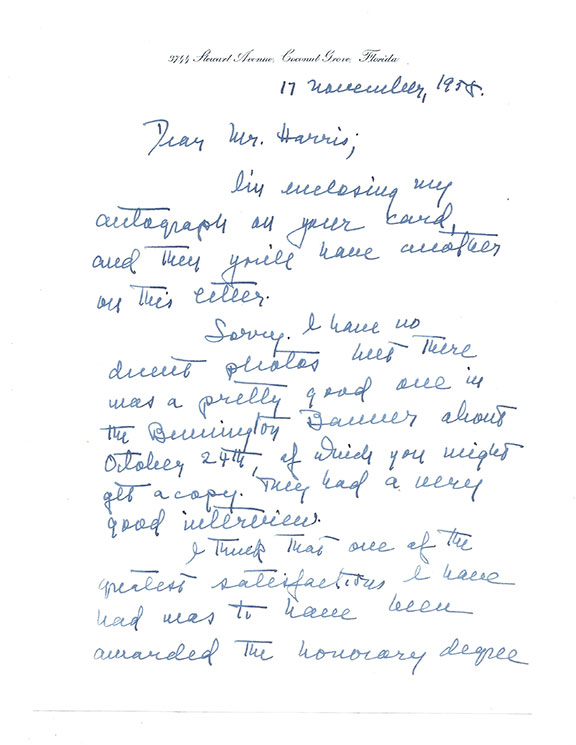 3744 Stewart Avenue, Coconut Grove, Florida
17 November, 1958.
Dear Mr. Harris;
I'm enclosing my
autograph on your card,
and then you'll have another
on this letter.
Sorry. I have no
decent photos but there
was a pretty good one in
the Bennington Banner about
October 24th, of which you might
get a copy. They had a very
good interview.
I think that one of the
greatest satisfactions I have
had was to have been
awarded the honorary degree